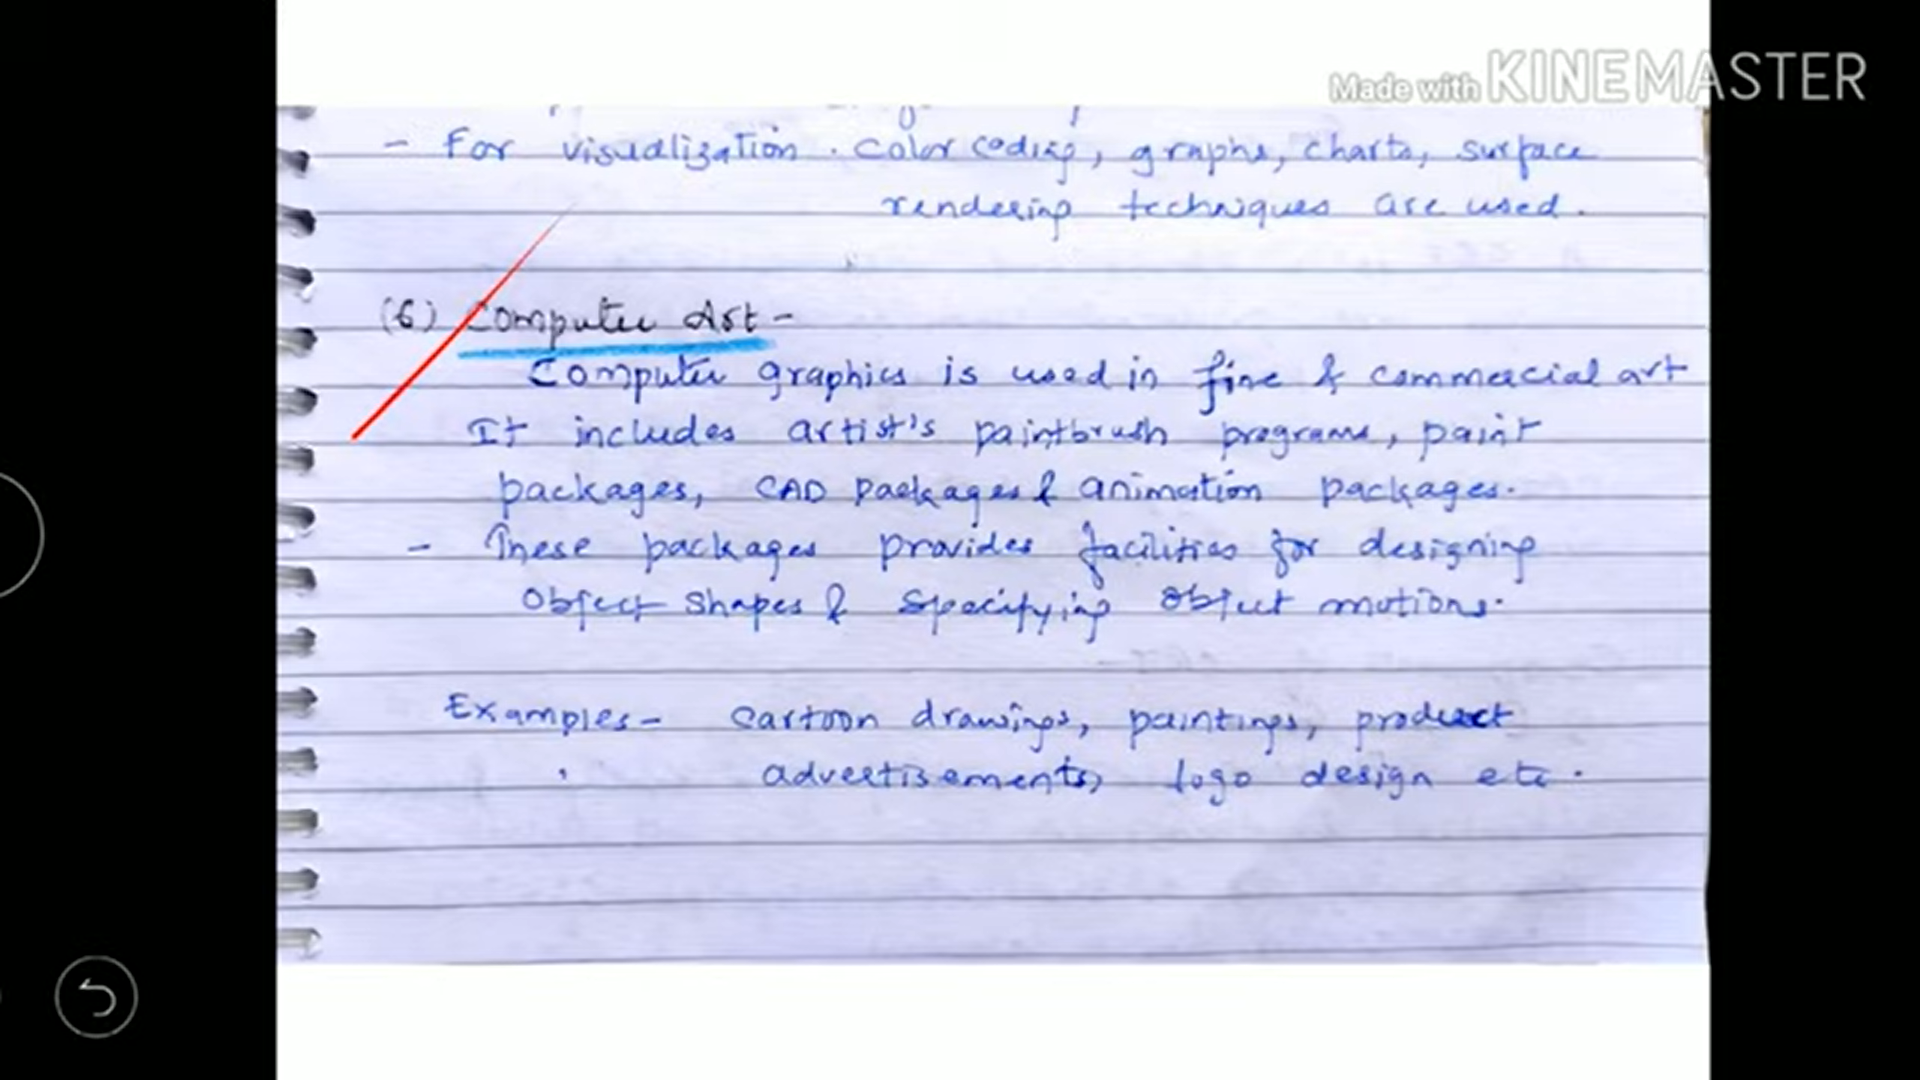 Made with KINEMASTER
- For visualization . color coding, graphs, charts, surface
rendering techniques are used.
(6) Computer Art -
Computer graphics is used in fine & commercial art
It includes artist's paintbrush programs, paint
packages, CAD packages & animation packages.
- These packages provides facilities for designing
Object shapes & specifying object motions.
Examples - cartoon drawings, paintings, product
advertisements, logo design etc.